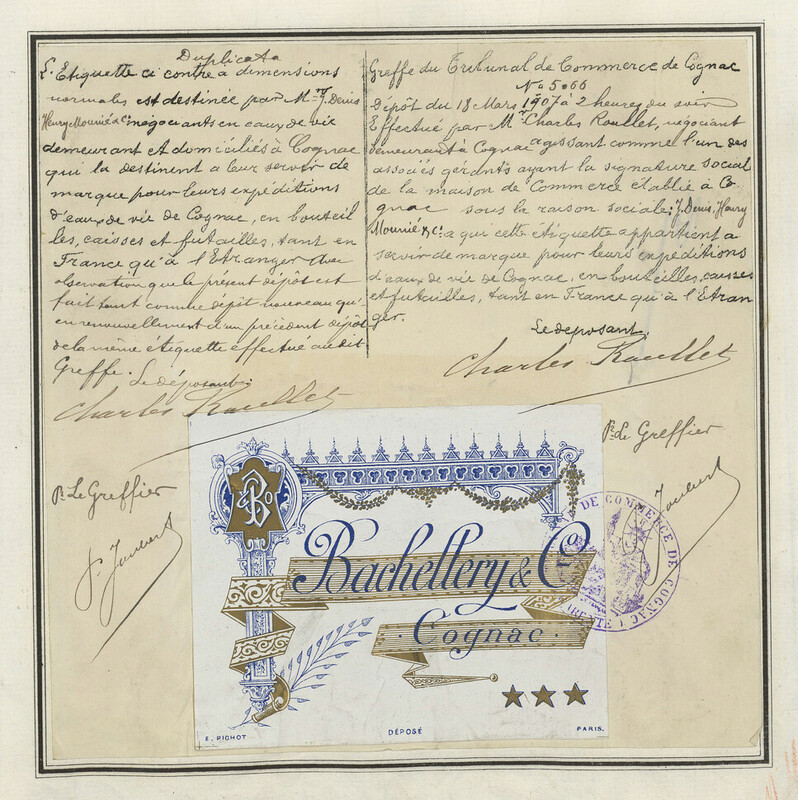 Duplicata
L'Etiquette ci contre a dimensions
normales est destinée par M.rs J. Denis
Henry Mounié & Co négociants en eaux de vie
demeurant et domiciliés à Cognac
qui la destinent a leur servir de
marque pour leurs expéditions
d'eaux de vie de Cognac, en bouteil
les, caisses et futailles, tant en
France qu'à l'Etranger avec
observation que le présent dépôt est
fait tant comme dépôt nouveau qu'
en renouvellement d'un précédent dépôt
de la même étiquette effectué au dit
Greffe. Le déposant:
Charles Roullet
Pr. Le Greffier
P. Joubert
Greffe du Tribunal de Commerce de Cognac
No 5066
Dépôt du 18 Mars 1907 à 2 heures du soir
Effectué par Mr Charles Roullet, négociant
demeurant à Cognac agissant comme l'un des
associés gérants ayant la signature social
de la maison de Commerce établie à Co
gnac sous la raison sociale: J. Denis, Henry
Mounié & Co. a qui cette etiquette appartient a
servir de marque pour leurs expéditions
d'eaux de vie de Cognac, en bouteilles, caisses
et futailles, tant en France qu'à l'Etran
ger.
Le deposant,
Charles Roullet
Pr. Le Greffier
Joubert
B & Co
Bachellery & Co
Cognac
E. PICHOT
DÉPOSÉ
PARIS.
DE COMMERCE DE COGNAC